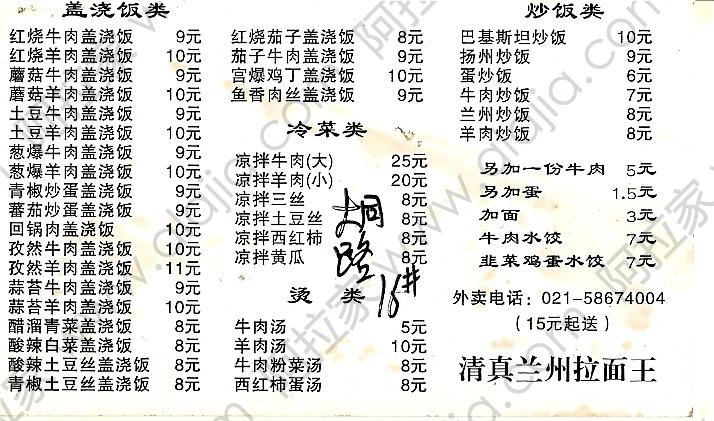 盖浇饭类
红烧牛肉盖浇饭 9元
红烧羊肉盖浇饭 10元
蘑菇牛肉盖浇饭 9元
蘑菇羊肉盖浇饭 10元
土豆牛肉盖浇饭 9元
土豆羊肉盖浇饭 10元
葱爆牛肉盖浇饭 9元
葱爆羊肉盖浇饭 10元
青椒炒蛋盖浇饭 9元
蕃茄炒蛋盖浇饭 9元
回锅肉盖浇饭 10元
孜然牛肉盖浇饭 10元
孜然羊肉盖浇饭 11元
蒜苔牛肉盖浇饭 9元
蒜苔羊肉盖浇饭 10元
醋溜青菜盖浇饭 8元
酸辣白菜盖浇饭 8元
酸辣土豆丝盖浇饭 8元
青椒土豆丝盖浇饭 8元
红烧茄子盖浇饭 8元
茄子牛肉盖浇饭 9元
宫爆鸡丁盖浇饭 10元
鱼香肉丝盖浇饭 9元
冷菜类
凉拌牛肉(大) 25元
凉拌羊肉(小) 20元
凉拌三丝 8元
凉拌土豆丝 8元
凉拌西红柿 8元
凉拌黄瓜 8元
烫类
牛肉汤 5元
羊肉汤 10元
牛肉粉菜汤 8元
西红柿蛋汤 8元
路
16#
炒饭类
巴基斯坦炒饭 10元
扬州炒饭 9元
蛋炒饭 6元
牛肉炒饭 7元
兰州炒饭 8元
羊肉炒饭 8元
另加一份牛肉 5元
另加蛋 1.5元
加面 3元
牛肉水饺 7元
韭菜鸡蛋水饺 7元
外卖电话：021-58674004
(15元起送)
清真兰州拉面王
阿拉家 www.alajia.com